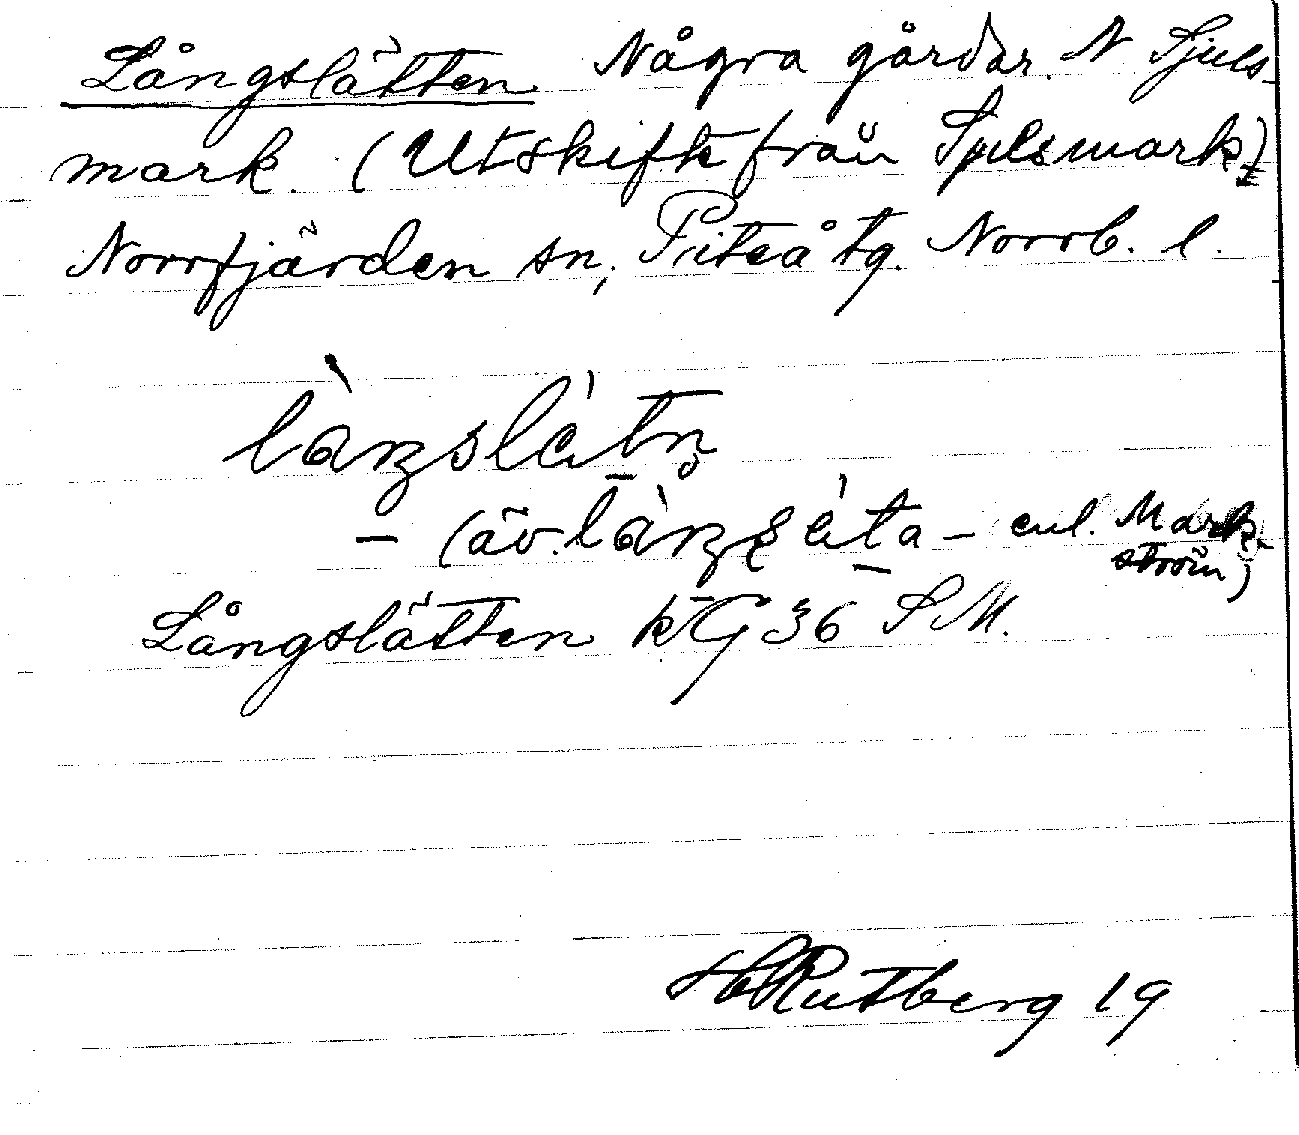 Långslätten Några gårdar. N Sjuls-
mark. (Utskift från Sjulsmark)
Norrfjärden sn, Piteå tg. Norrb. l.
làŋslàtn̥
– (äv. làŋsàta – enl. Mark-
ström)
Långslätten kG 36 SM.
H Rutberg 19